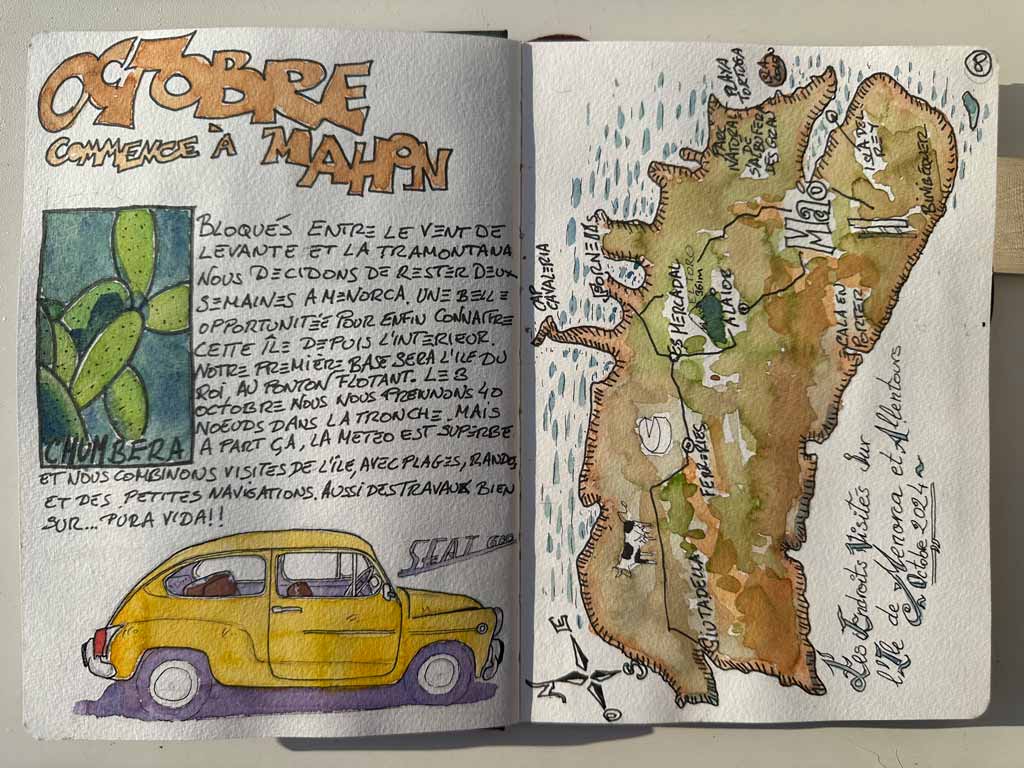 OCTOBRE
COMMENCE À MAHON
BLOQUÉS ENTRE LE VENT DE
LEVANTE ET LA TRAMONTANA
NOUS DECIDONS DE RESTER DEUX
SEMAINES A MENORCA. UNE BELLE
OPPORTUNITÉE POUR ENFIN CONNAITRE
CETTE ÎLE DEPUIS L'INTERIEUR.
NOTRE PREMIÈRE BASE SERA L'ILE DU
ROI AU PONTON FLOTANT. LE 8
OCTOBRE NOUS NOUS PRENNONS 40
NOEUDS DANS LA TRONCHE. MAIS
A PART ÇA, LA METEO EST SUPERBE
ET NOUS COMBINONS VISITES DE L'ÎLE, AVEC PLAGES, RANDOS
ET DES PETITES NAVIGATIONS. AUSSI DES TRAVAUX BIEN
SUR... PURA VIDA!!
CHUMBERA
SEAT 600
PLAYA
TORTUGA
PARC
NATURAL
DE
S'ALBUFERA
DES GRAU
ILLA DEL
REY
BINIBEQUER
MAÓ
CAP
CAVALERIA
FORNELLS
ES MERCADAL
TORO
ALAIOR
CALA EN
PORTER
FERRERIES
CIUTADELLA
N
E
S
O
Les Endroits Visités Sur
l'Ile de Menorca et Allentours
Octobre 2024